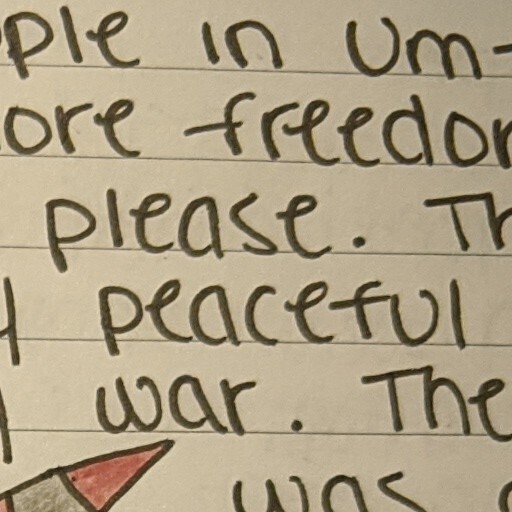 ple in Um-
ore freedom
please. Th
y peaceful
war. The
was